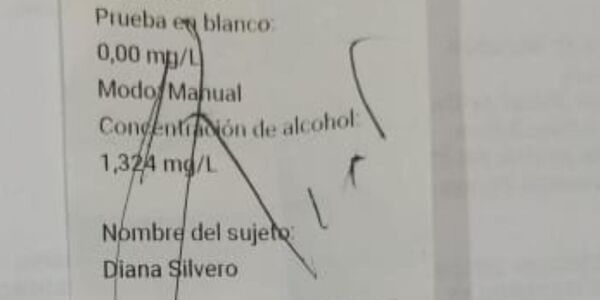 Prueba en blanco:
0,00 mg/L
Modo: Manual
Concentración de alcohol:
1,324 mg/L
Nombre del sujeto:
Diana Silvero